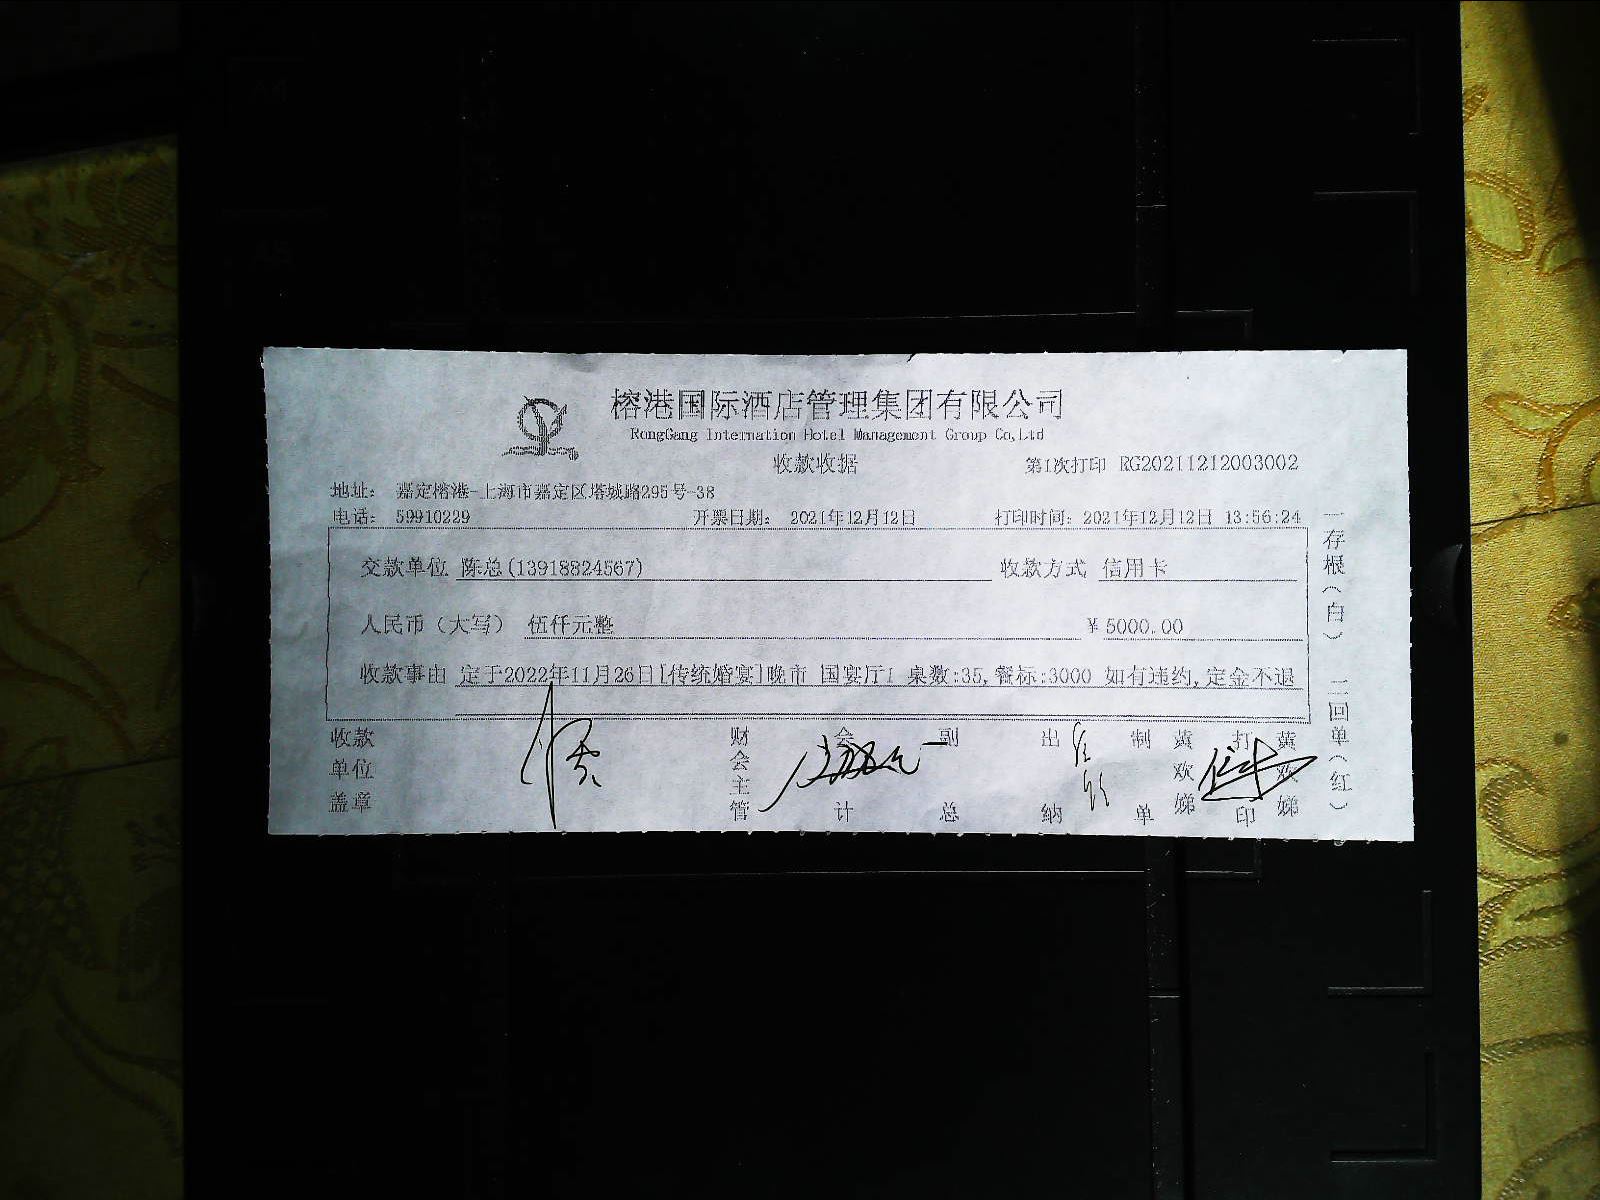 榕港国际酒店管理集团有限公司
RongGang Internation Hotel Management Group Co,Ltd
收款收据
第1次打印 RG20211212003002
地址: 嘉定榕港-上海市嘉定区塔城路295号-38
电话: 59910229 开票日期: 2021年12月12日 打印时间: 2021年12月12日 13:56:24
交款单位 陈总(13918824567) 收款方式 信用卡
人民币（大写） 伍仟元整 ￥5000.00
收款事由 定于2022年11月26日[传统婚宴]晚市 国宴厅1 桌数:35,餐标:3000 如有违约,定金不退
收款单位盖章
财会主管
会计
副总
出纳
制单
黄欢娣
打印
黄欢娣
一存根（白）
二回单（红）
A4
A5